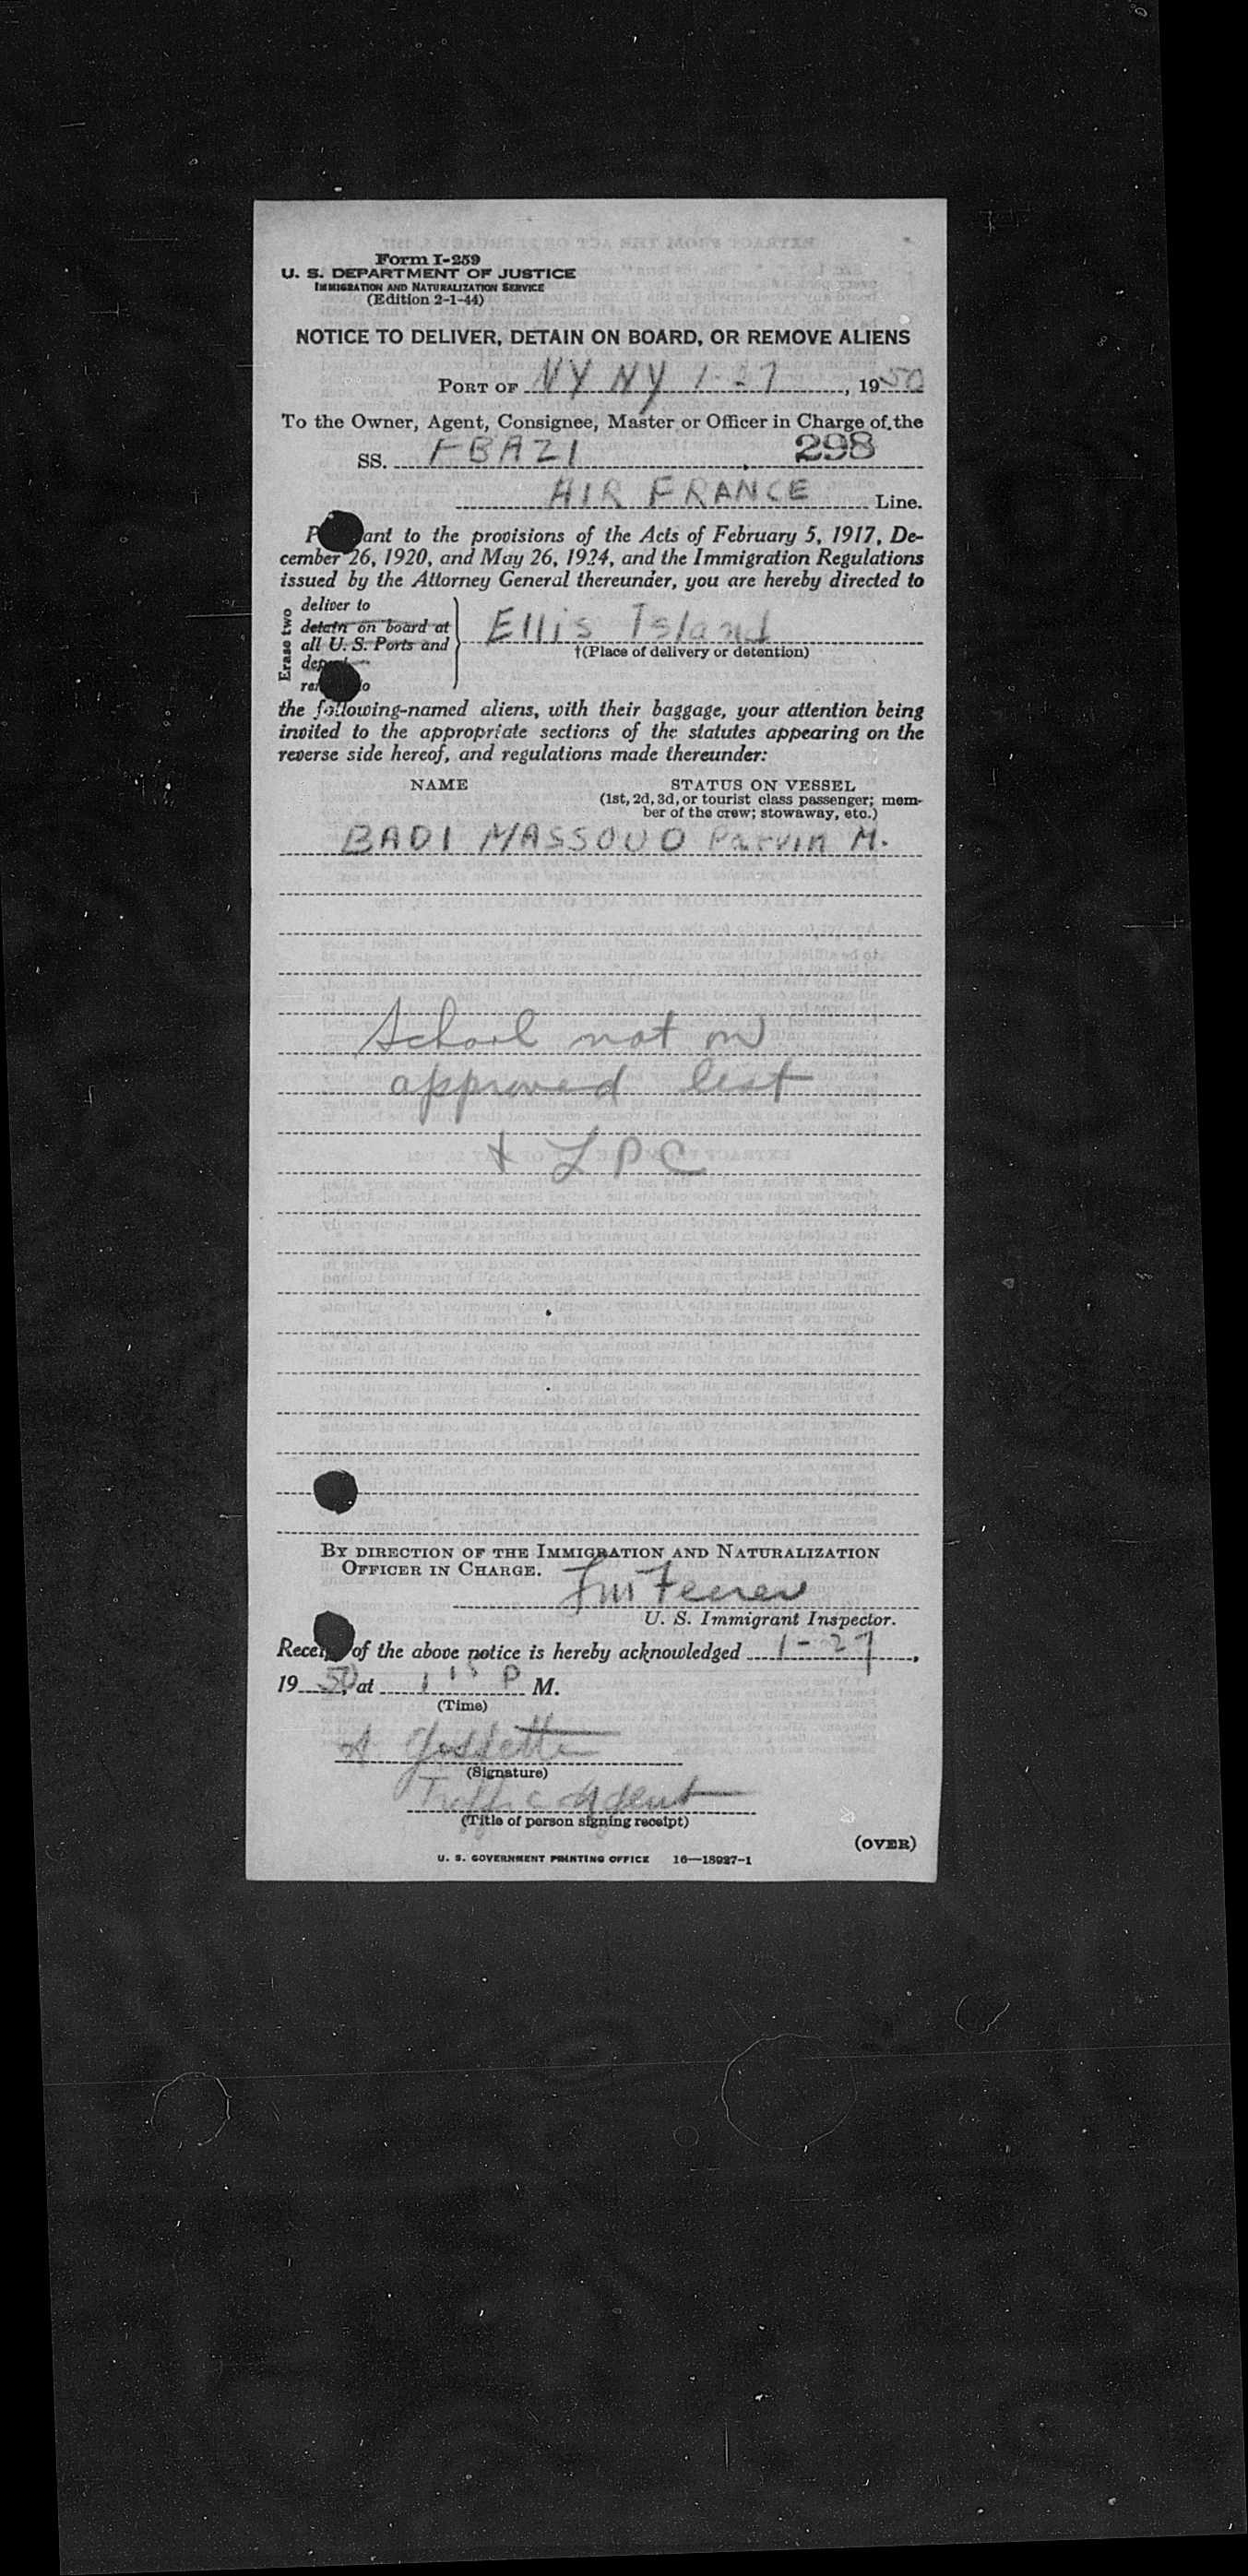 Form I-259
U. S. DEPARTMENT OF JUSTICE
IMMIGRATION AND NATURALIZATION SERVICE
(Edition 2-1-44)
NOTICE TO DELIVER, DETAIN ON BOARD, OR REMOVE ALIENS
PORT OF NY NY 1-27, 1950
To the Owner, Agent, Consignee, Master or Officer in Charge of the
SS. FBAZI, 298
AIR FRANCE Line.
P ant to the provisions of the Acts of February 5, 1917, De-
cember 26, 1920, and May 26, 1924, and the Immigration Regulations
issued by the Attorney General thereunder, you are hereby directed to
Erase two
deliver to
detain on board at
all U. S. Ports and
Ellis Island
†(Place of delivery or detention)
the following-named aliens, with their baggage, your attention being
invited to the appropriate sections of the statutes appearing on the
reverse side hereof, and regulations made thereunder:
NAME STATUS ON VESSEL
(1st, 2d, 3d, or tourist class passenger; mem-
ber of the crew; stowaway, etc.)
BADI MASSOUD Parvin M.
School not on
approved list
+ LPC
BY DIRECTION OF THE IMMIGRATION AND NATURALIZATION
OFFICER IN CHARGE.
U. S. Immigrant Inspector.
Receipt of the above notice is hereby acknowledged 1-27,
1950, at 1 15 P M.
(Time)
A
(Signature)
Traffic Agent
(Title of person signing receipt)
(OVER)
U. S. GOVERNMENT PRINTING OFFICE 16—18927-1